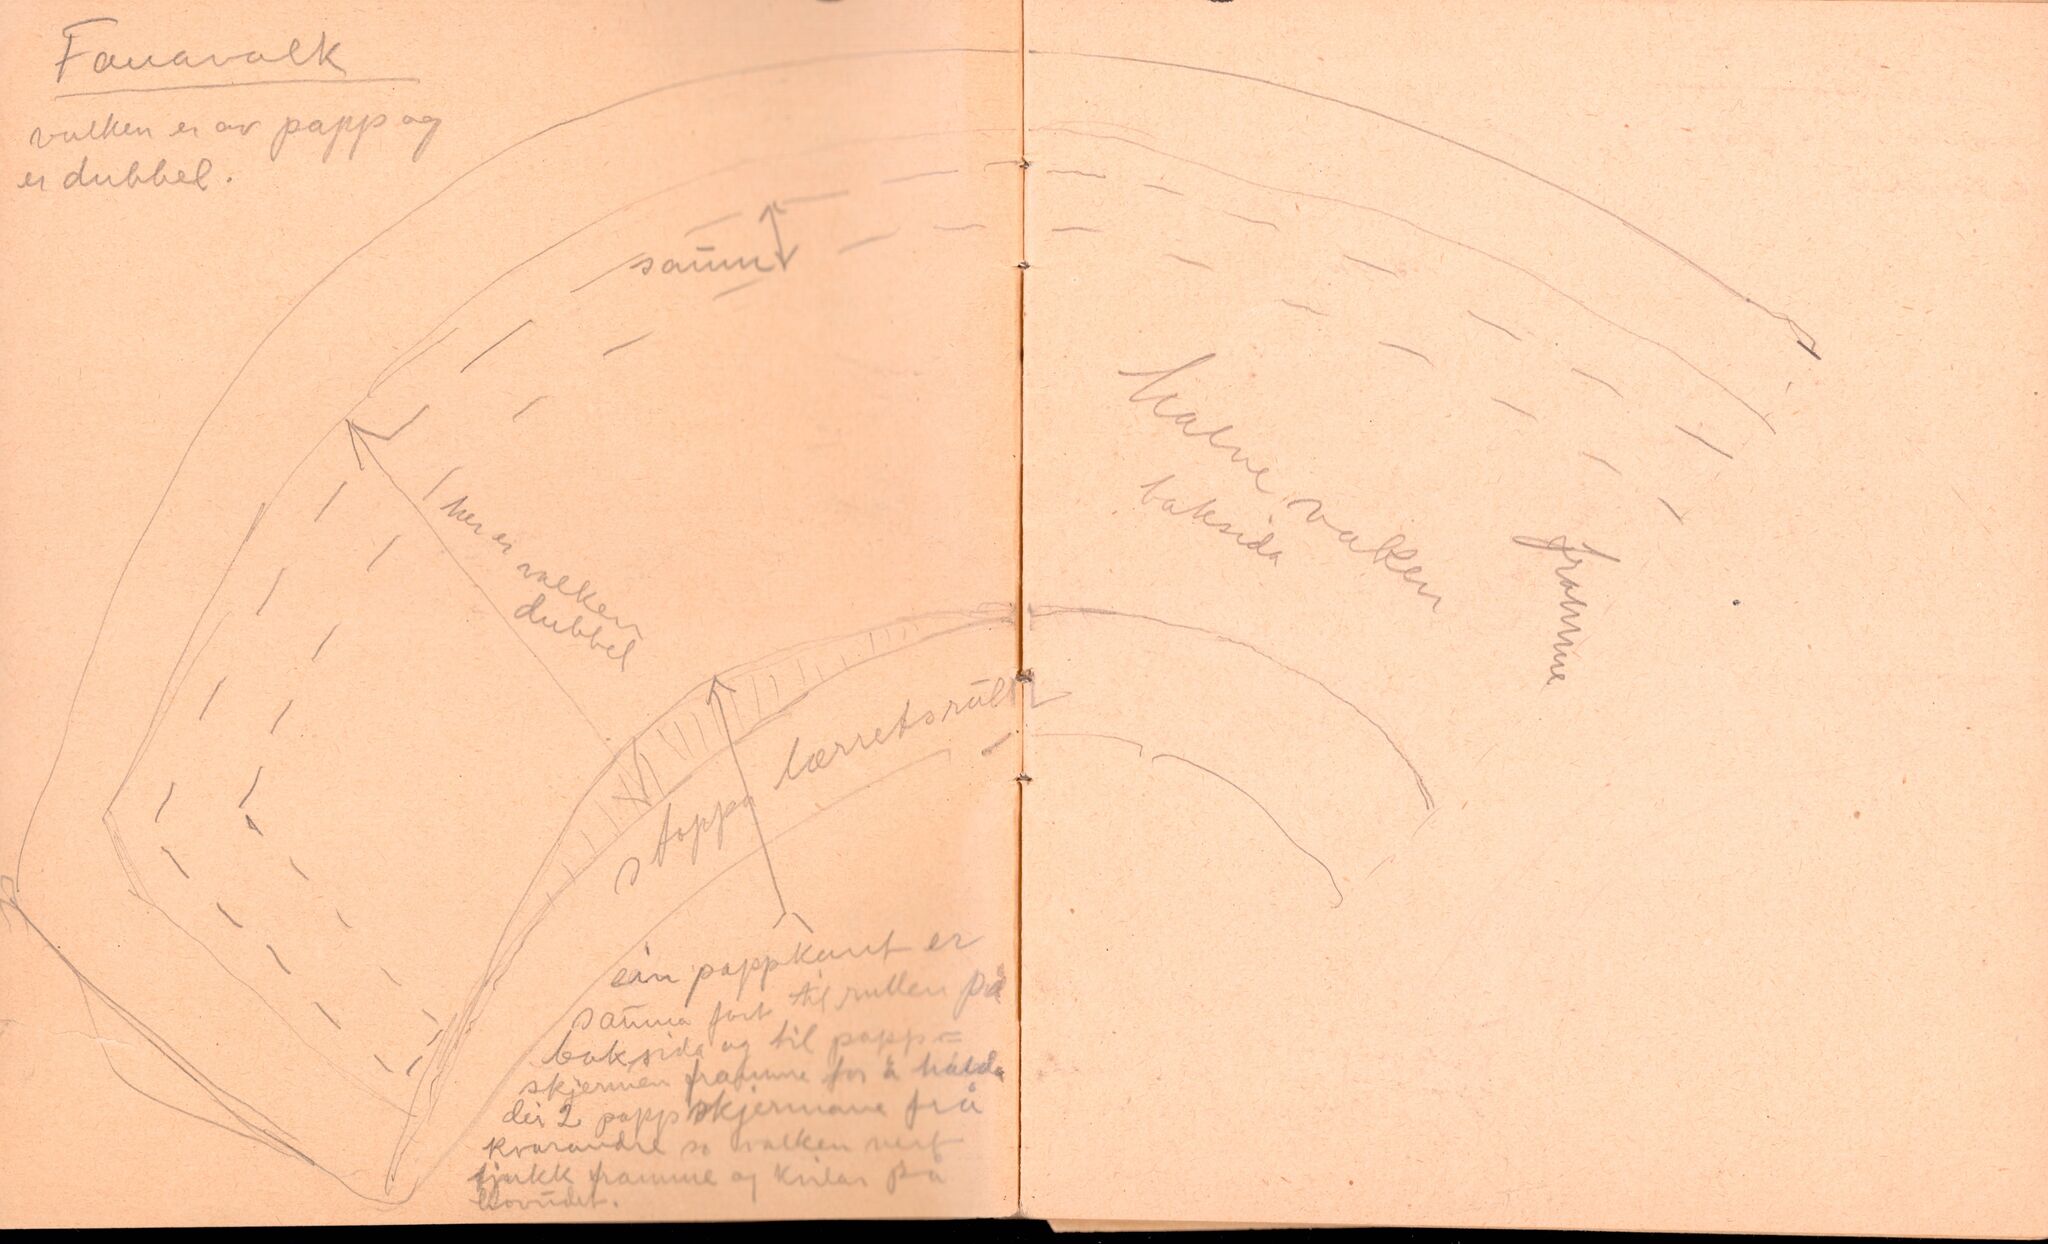 Fanavalk
valken er av papp og
er dubbel.
saum
her er valken
dubbel
halve valken
baksida
framme
stoppa lærretsrull
ein pappkant er
sauma fast til rullen på
baksida og til papp=
skjermen framme for å halda
dei 2 pappskjermane frå
kvarandre so valken vert
tjukk framme og kvilar på
hovudet.